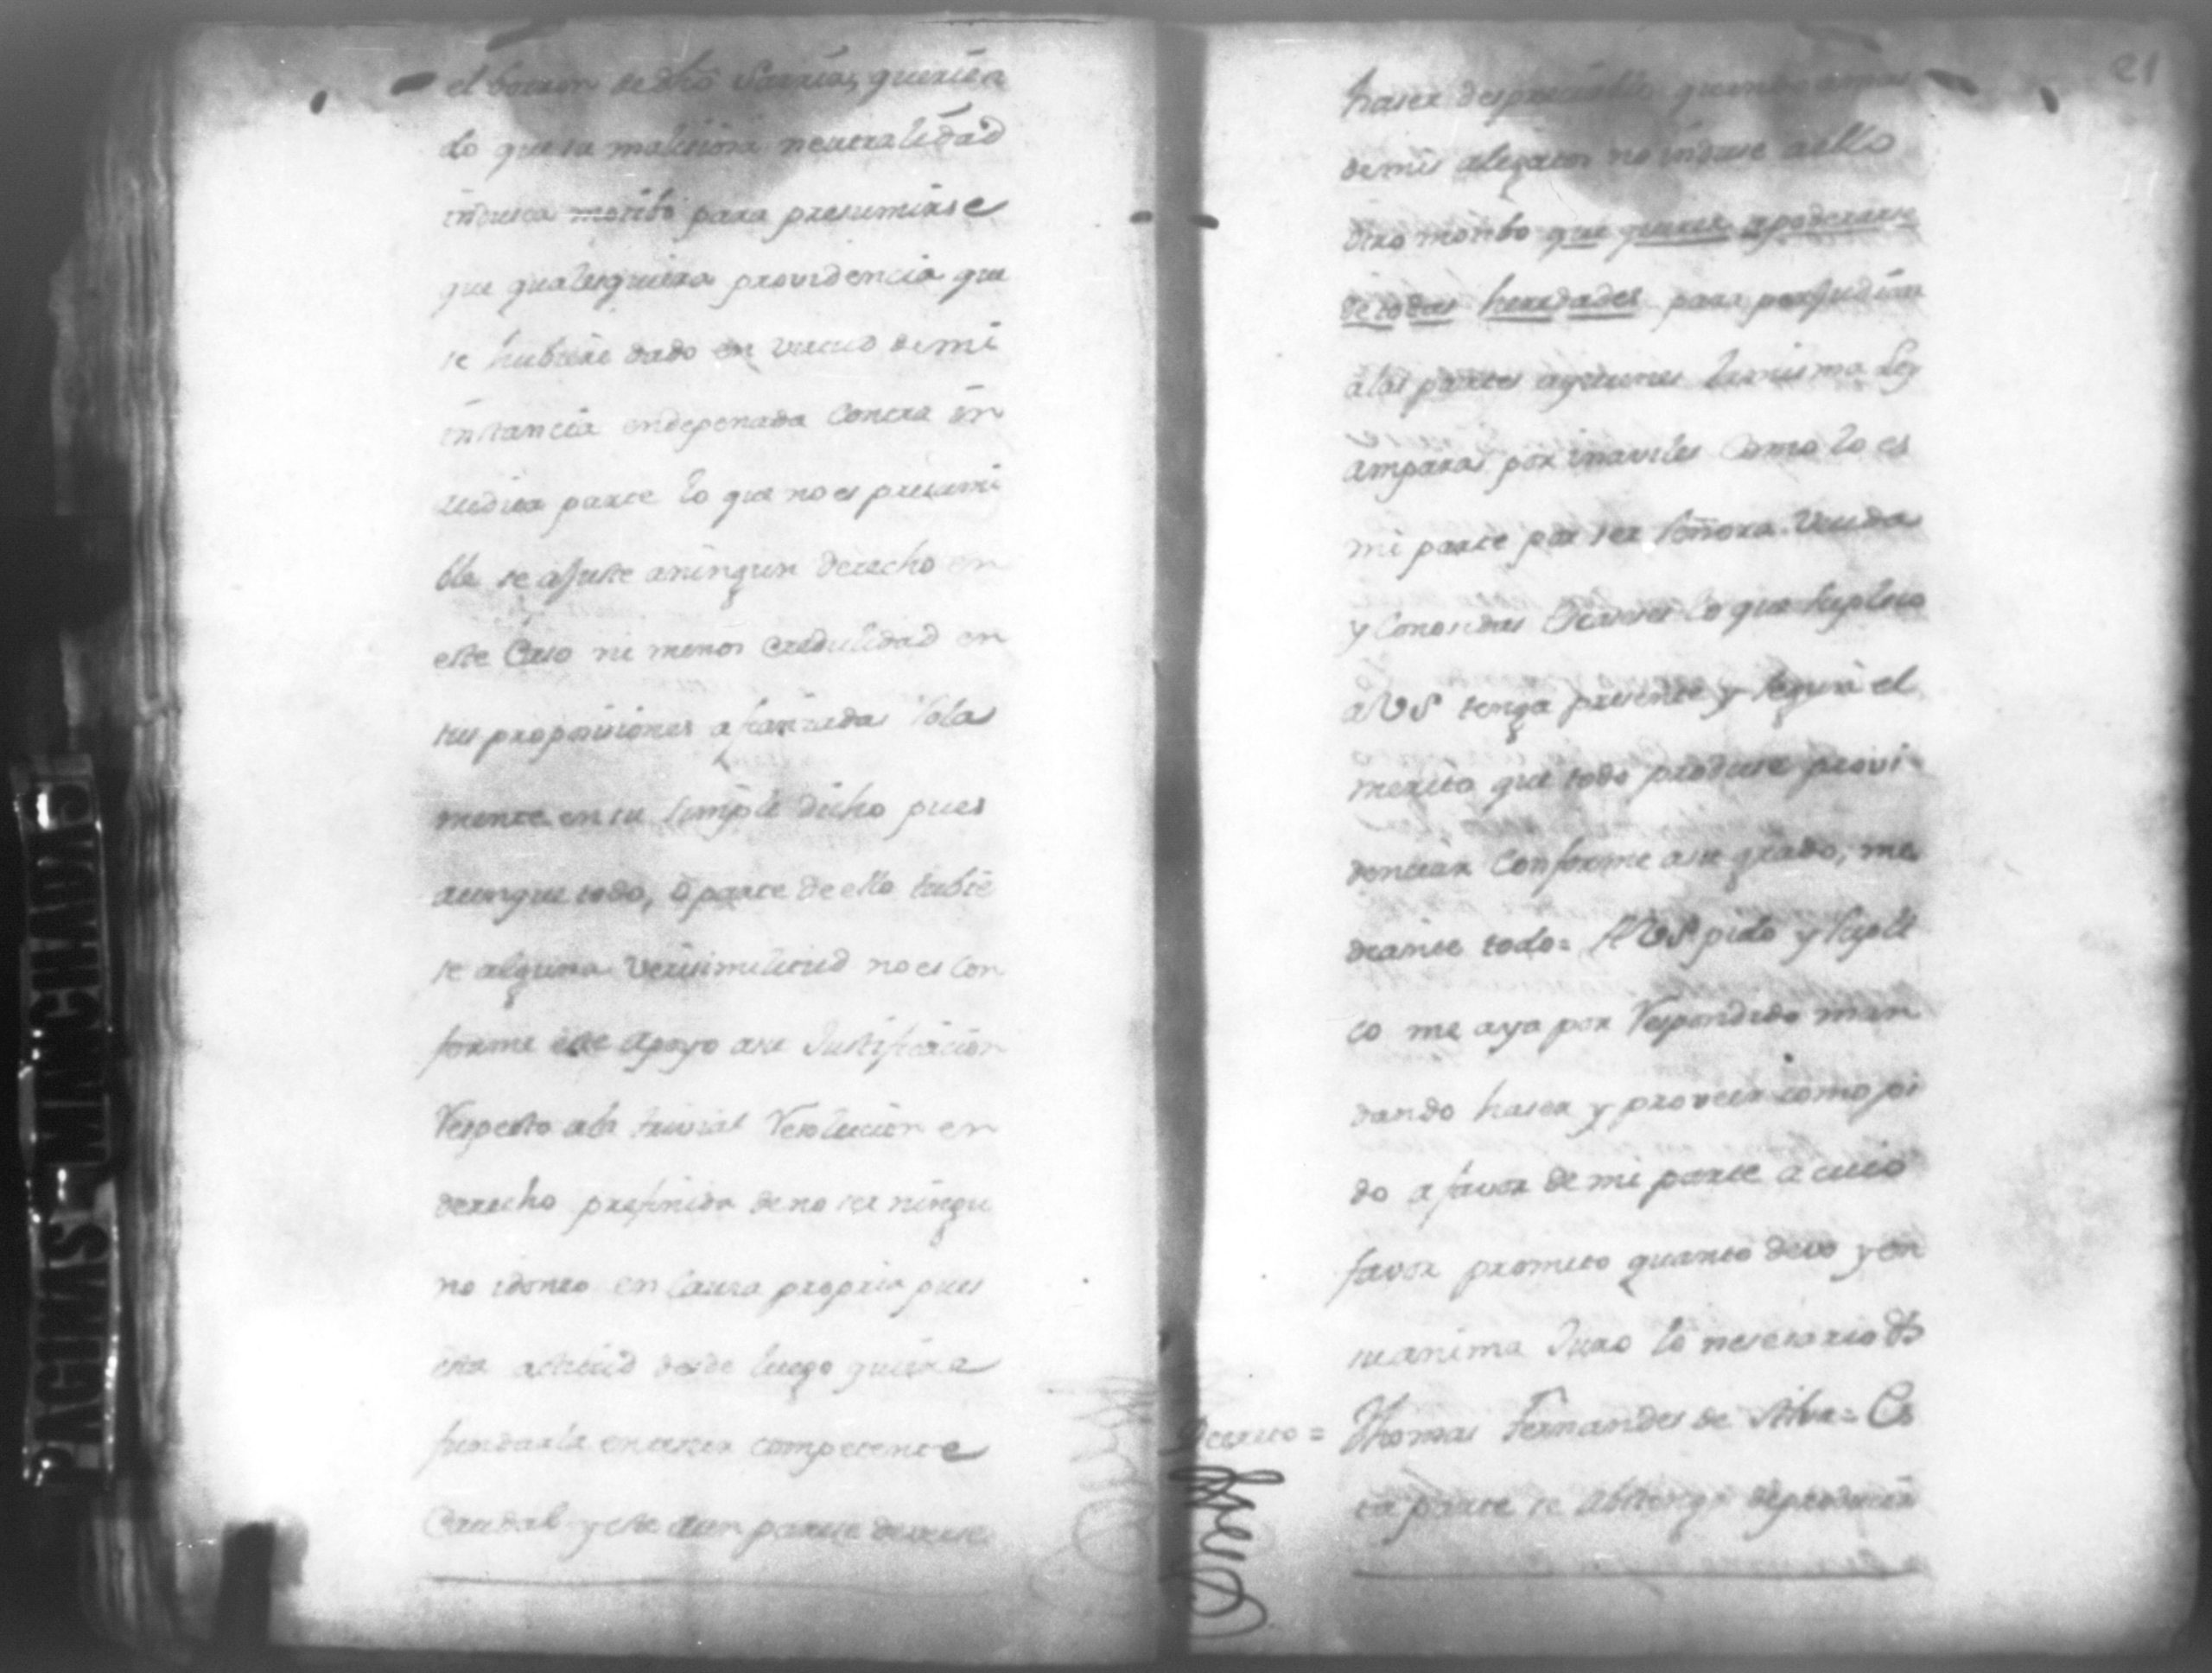 el borron de dho Sarria, querien
do que su maliciosa neutralidad
indusca motibo para presumirse
que qualesquiera providencia que
se hubiere dado en virtud de mi
instancia endepenada contra in
audita parte lo que no es presumi
ble se ajuste aningun derecho en
este Caso ni menos credulidad en
sus proposisiones afianzadas sola
mente en su simple dicho pues
aunque todo, ô parte de ello tubie
se alguna verisimilitud no es con
forme este apoyo asu Justificacion
Respecto ala trivial Resolucion en
derecho prefinida de no ser ningu
no idoneo en Causa propria pues
esta actitud desde luego quiera
fundarla en tener competente
Caudal y este aun parece deverse
21
haser despreciable quando
demis alegatos no induse aello
otro motibo que querer apoderarse
de todas heredades para perjudicar
alas partes aquienes la misma Ley
ampara por inaviles Como lo es
mi parte por ser señora Viuda
y Conosidas lo que suplico
a VS tenga presente y segun el
merito que todo produse provi-
denciar Conforme asu grado, me
diante todo= A VS pido y supli
co me aya por Respondido man
dando haser y proveer como pi
do a favor de mi parte a cuio
favor prometo quanto devo y en
su anima Juro lo nesesario &
Decreto = Thomas Fernandes de Silva= Es
ta parte se abstenga deproducir
PAGINAS MANCHADAS